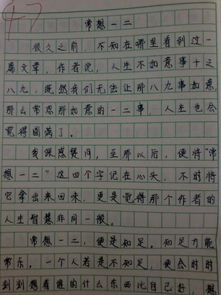 47
常想一二
很久之前，不知在哪里看到过一
篇文章，作者说，人生不如意事十之
八九，既然我们无法让那八九事如意，
那么常思那如意的一二事，人生也会
觉得圆满了。
我深感赞同，至那以后，便将“常
想一二”这四个字记在心头，不时将
它拿出来回味，更是觉得那个作者的
人生智慧非同一般。
常想一二，便是知足。知足方能
常乐，一个人若是不知足，便会时时
刻刻想着谁的什么东西比自己好，想